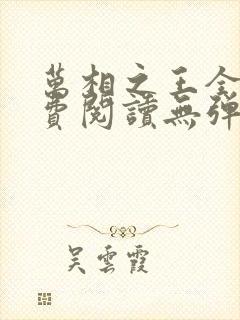 萬相之王全
費閱讀無彈
吳雲霞